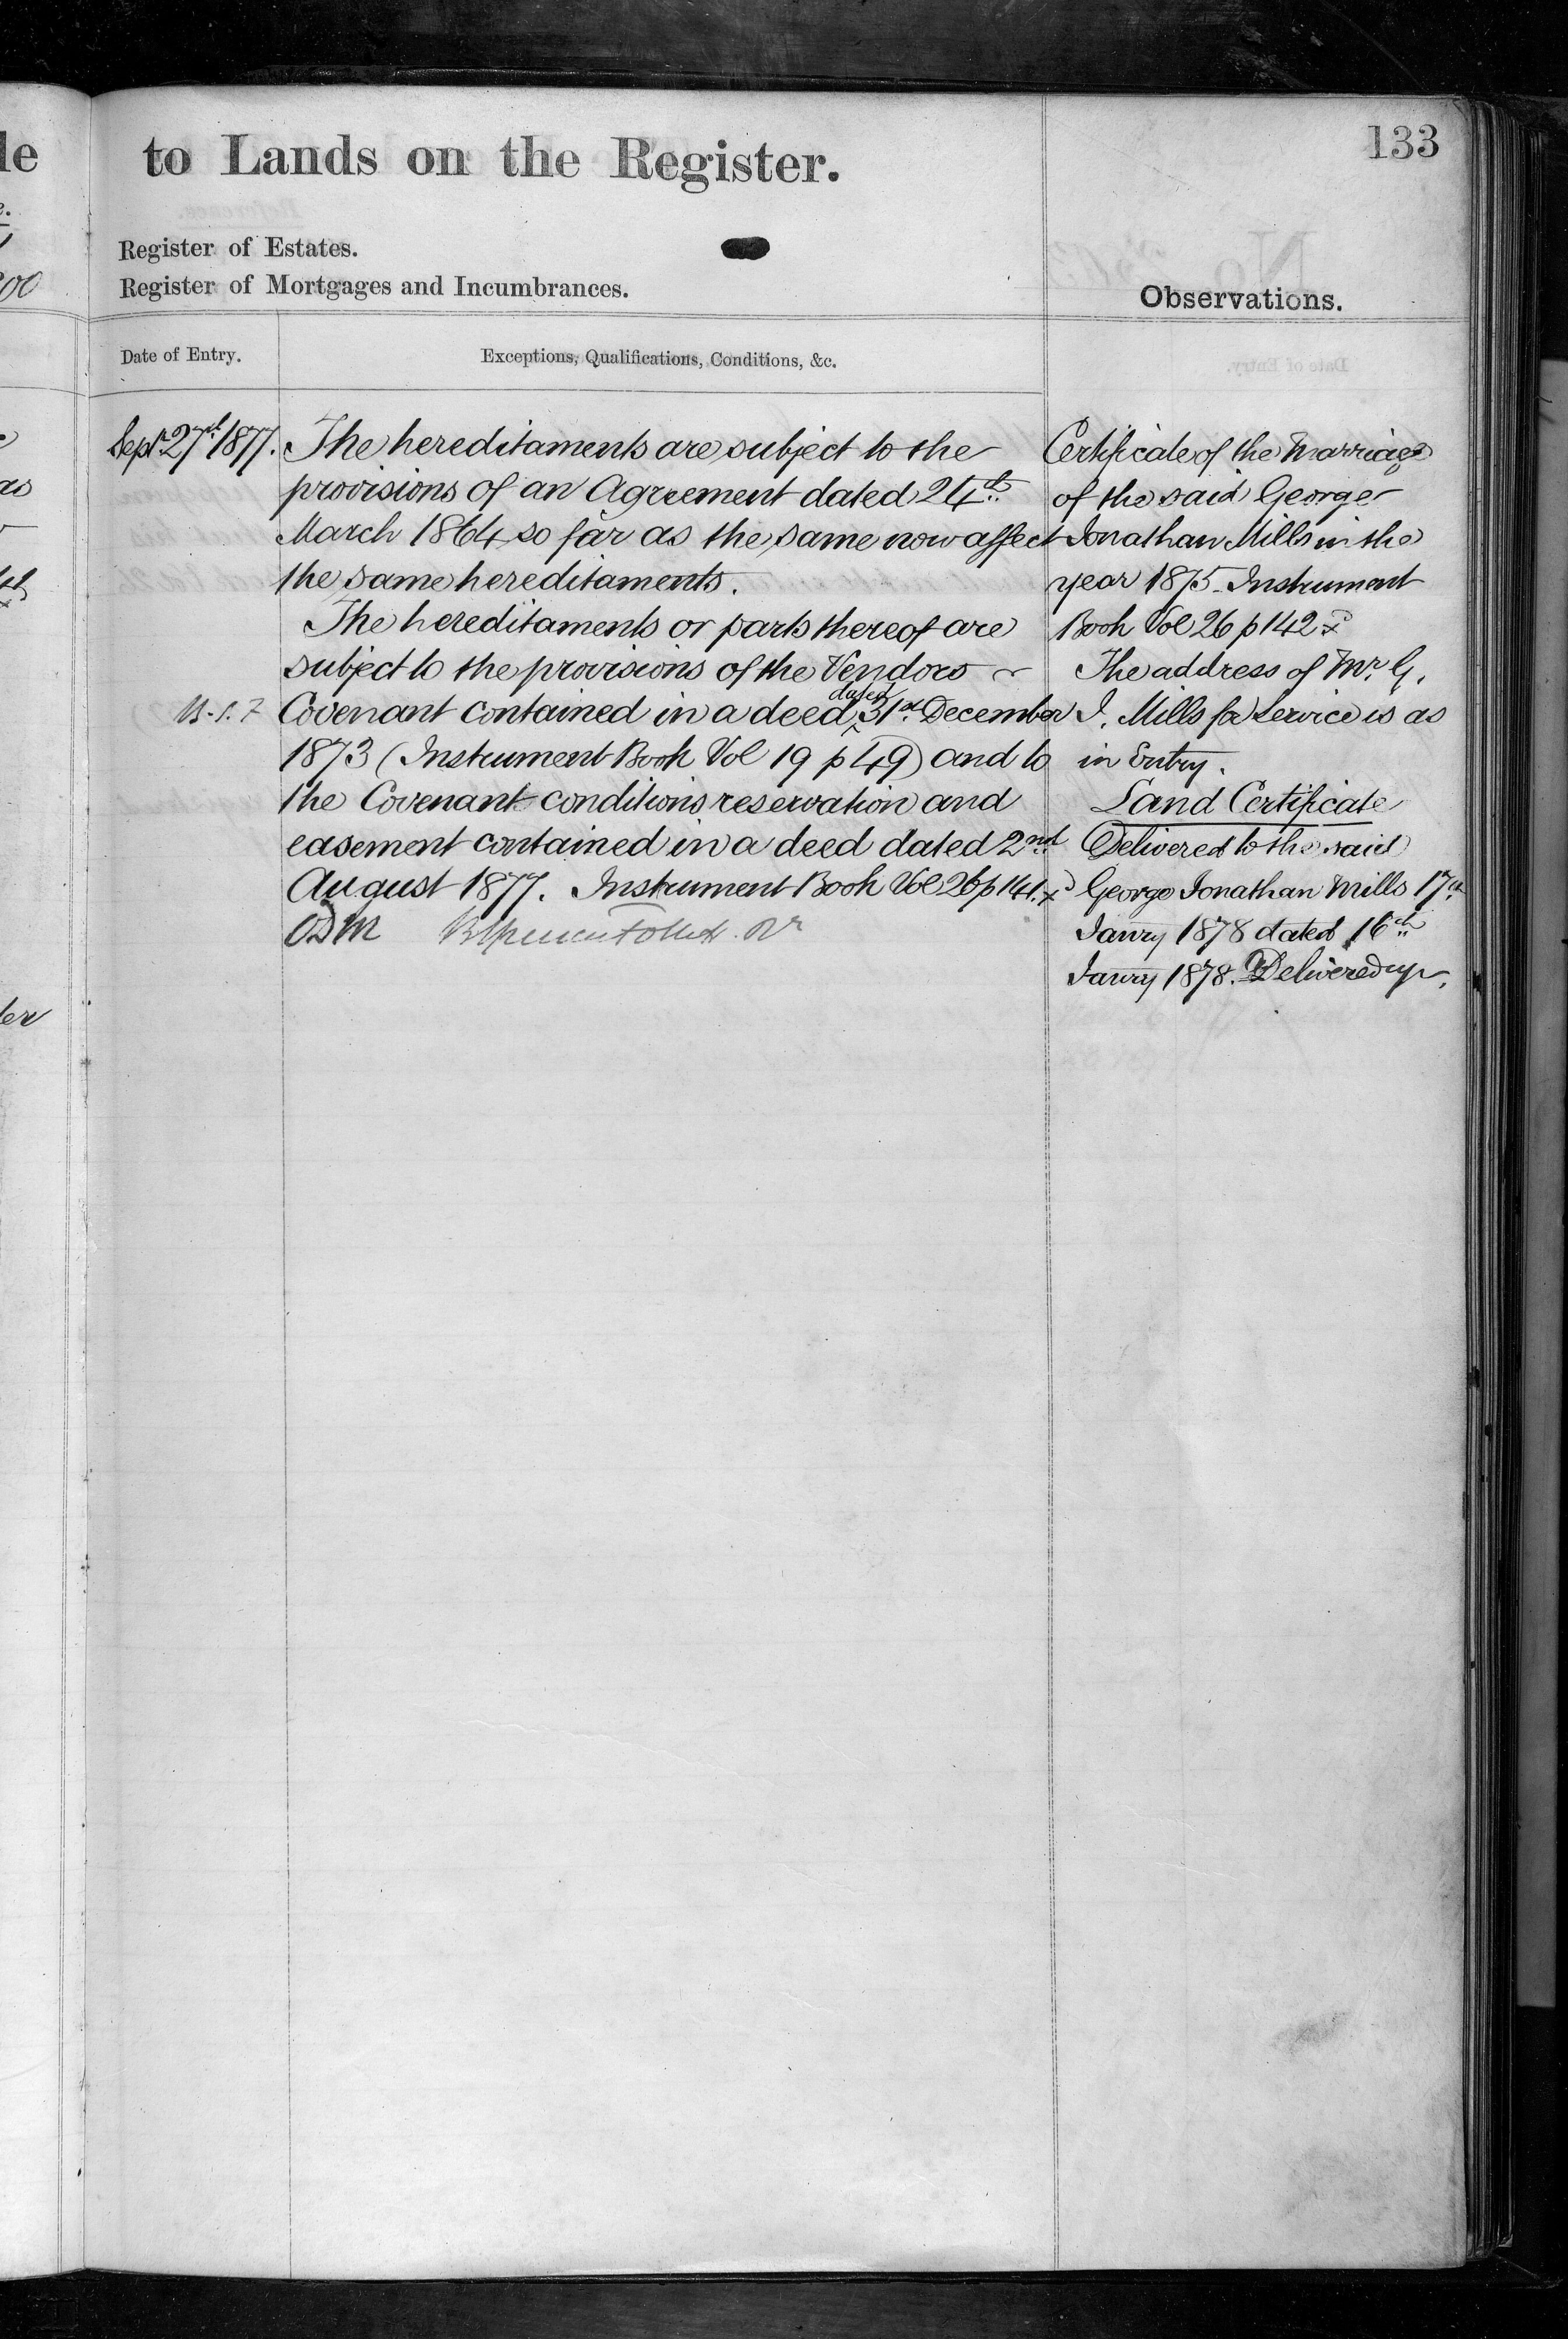 133
to Lands on the Register.
Register of Estates.
Register of Mortgages and Incumbrances.
Observations.
Date of Entry.
Exceptions, Qualifications, Conditions, &c.
Septr 27th 1877.
The hereditaments are subject to the
provisions of an Agreement dated 24th
March 1864 so far as the same now affect
the same hereditaments.
The hereditaments or parts thereof are
subject to the provisions of the Vendors
Covenant contained in a deed dated 31st December
1873 (Instrument Book Vol 19 p 49) and to
the Covenant conditions reservation and
easement contained in a deed dated 2nd
August 1877. Instrument Book Vol 26 p 141.
Certificate of the Marriage
of the said George
Jonathan Mills in the
year 1875 Instrument
Book Vol 26 p 142
The address of Mr. G.
J. Mills for Service is as
in Entry.
Land Certificate
Delivered to the said
George Jonathan Mills 17th
Janry 1878 dated 16th
Janry 1878. Delivered up.